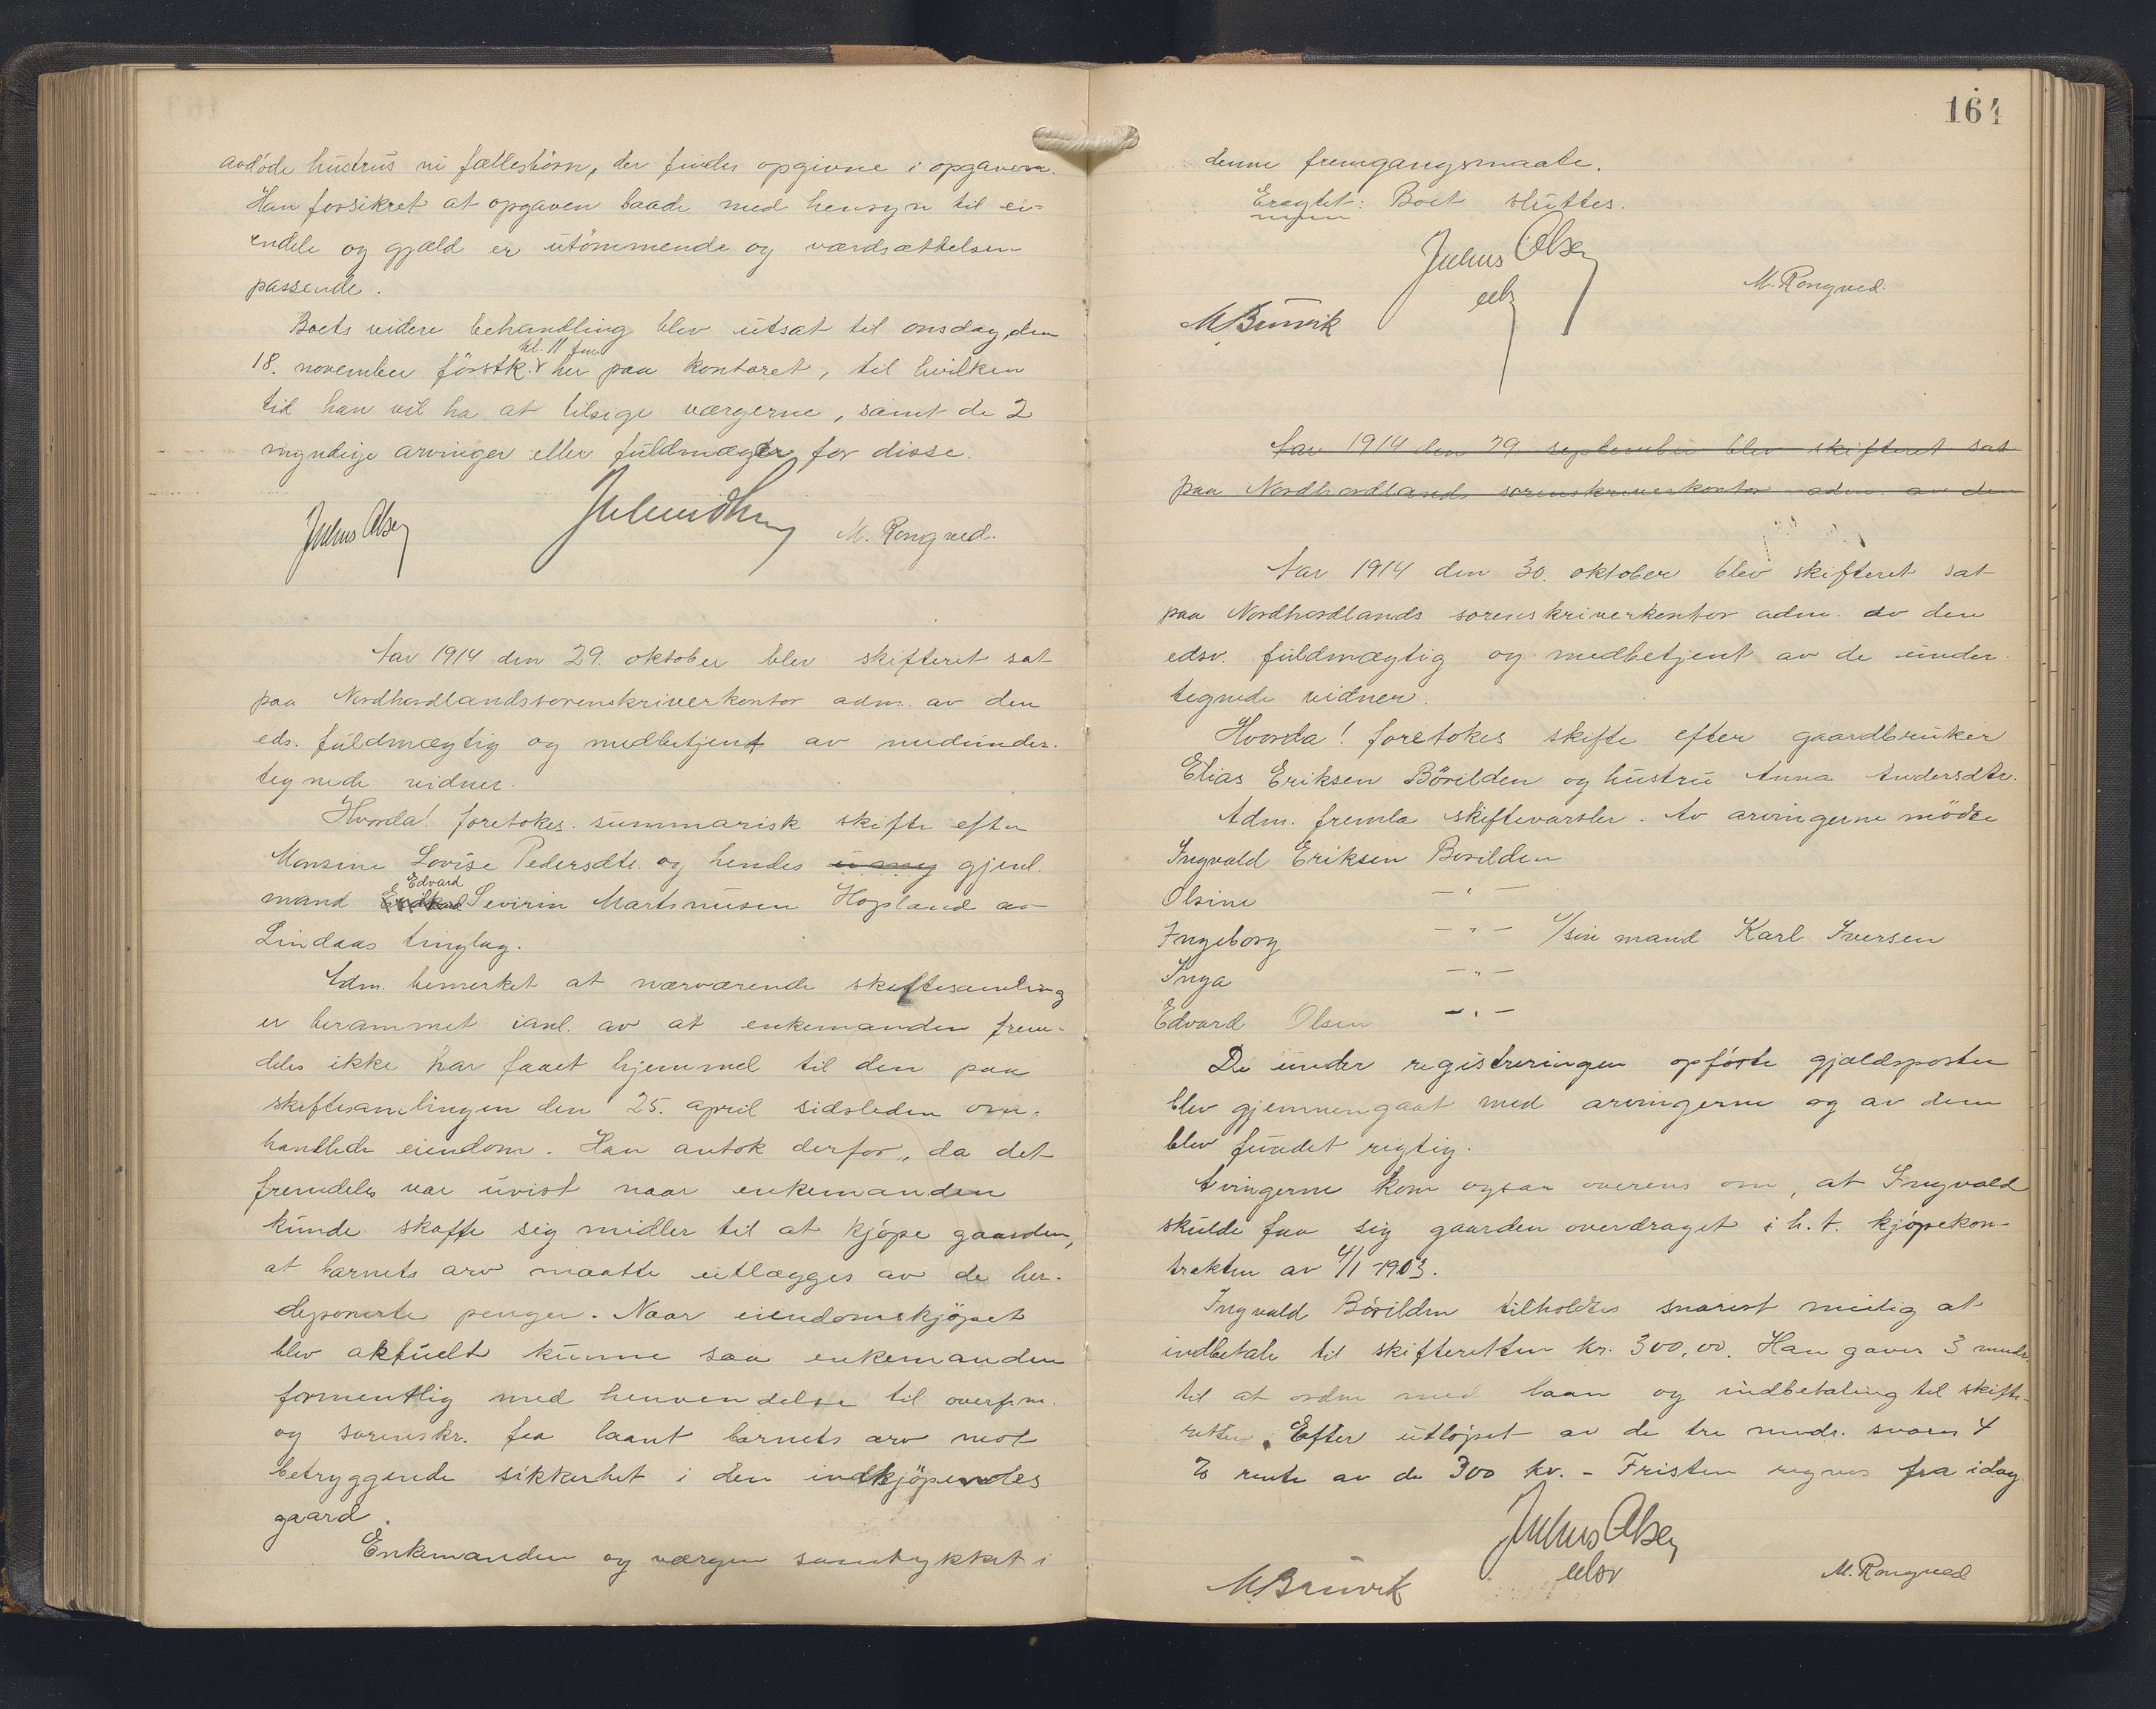 avdøde hustrus ni fællesbørn, der findes opgivne i opgaven.
Han forsikret at opgaven baade med hensyn til ei-
endele og gjæld er utömmende og værdsættelsen
passende.
Boets videre behandling blev utsat til onsdag den
kl. 11 fm.
18. november förstk. her paa kontoret, til hvilken
tid han vil ha at tilsige værgerne, samt de 2
myndige arvinger eller fuldmægter for disse.
Julius Olsen M. Rongved.
Aar 1914 den 29. oktober blev skifteret sat
paa Nordhordlands sorenskriverkontor adm. av den
eds. fuldmægtig og medbetjent av nedunder-
tegnede vidner.
Hvorda! foretokes summarisk skifte efter
Monsine Lovise Pedersdtr. og hendes gjenl.
Edvard
mand Severin Martinusen Hopland av
Lindaas tinglag.
Adm. bemerket at nærværende skiftesamling
er berammet ianl. av at enkemanden frem-
deles ikke har faaet hjemmel til den paa
skiftesamlingen den 25. april sidsleden om-
handlede eiendom. Han antok derfor, da det
fremdeles var uvist naar enkemanden
kunde skaffe sig midler til at kjøpe gaarden,
at barnets arv maatte utlægges av de her-
deponerte penger. Naar eiendomskjøpet
blev aktuelt kunne saa enkemanden
formentlig med henvendelse til overfm.
og sorenskr. faa laant barnets arv mot
betryggende sikkerhet i den indkjøpendes
gaard.
Enkemanden og værgen samtykket i
164
denne fremgangsmaate.
Eragtet: Boet sluttes.
Julius Olsen
eds
M. Rongved.
M Bruvik
Aar 1914 den 29 september blev skifteret sat
paa Nordhordlands sorenskriverkontor adm. av den
Aar 1914 den 30. oktober blev skifteret sat
paa Nordhordlands sorenskriverkontor adm. av den
edsv. fuldmægtig og medbetjent av de under-
tegnede vidner.
Hvorda! foretokes skifte efter gaardbruker
Elias Eriksen Börilden og hustru Anna Andersdtr.
Adm. fremla skiftevarsler. Av arvingerne mødte
Ingvald Eriksen Borilden
Olsine — " —
Ingeborg — " — v/sin mand Karl Iversen
Inga — " —
Edvard Olsen — " —
De under registreringen opførte gjældsposter
blev gjennemgaat med arvingerne og av dem
blev fundet rigtig.
Arvingerne kom ogsaa overens om, at Ingvald
skulde faa sig gaarden overdraget i h. t. kjøpekon-
trakten av 4/1 1903.
Ingvald Börilden tilholdtes snarest mulig at
indbetale til skifteretten kr. 300,00. Han gaves 3 mndr.
til at ordne med laan og indbetaling til skifte-
retten. Efter utløpet av de tre mndr. svares 4
% rente av de 300 kr. - Fristen regnes fra idag.
Julius Olsen
edsv
M Bruvik
M. Rongved